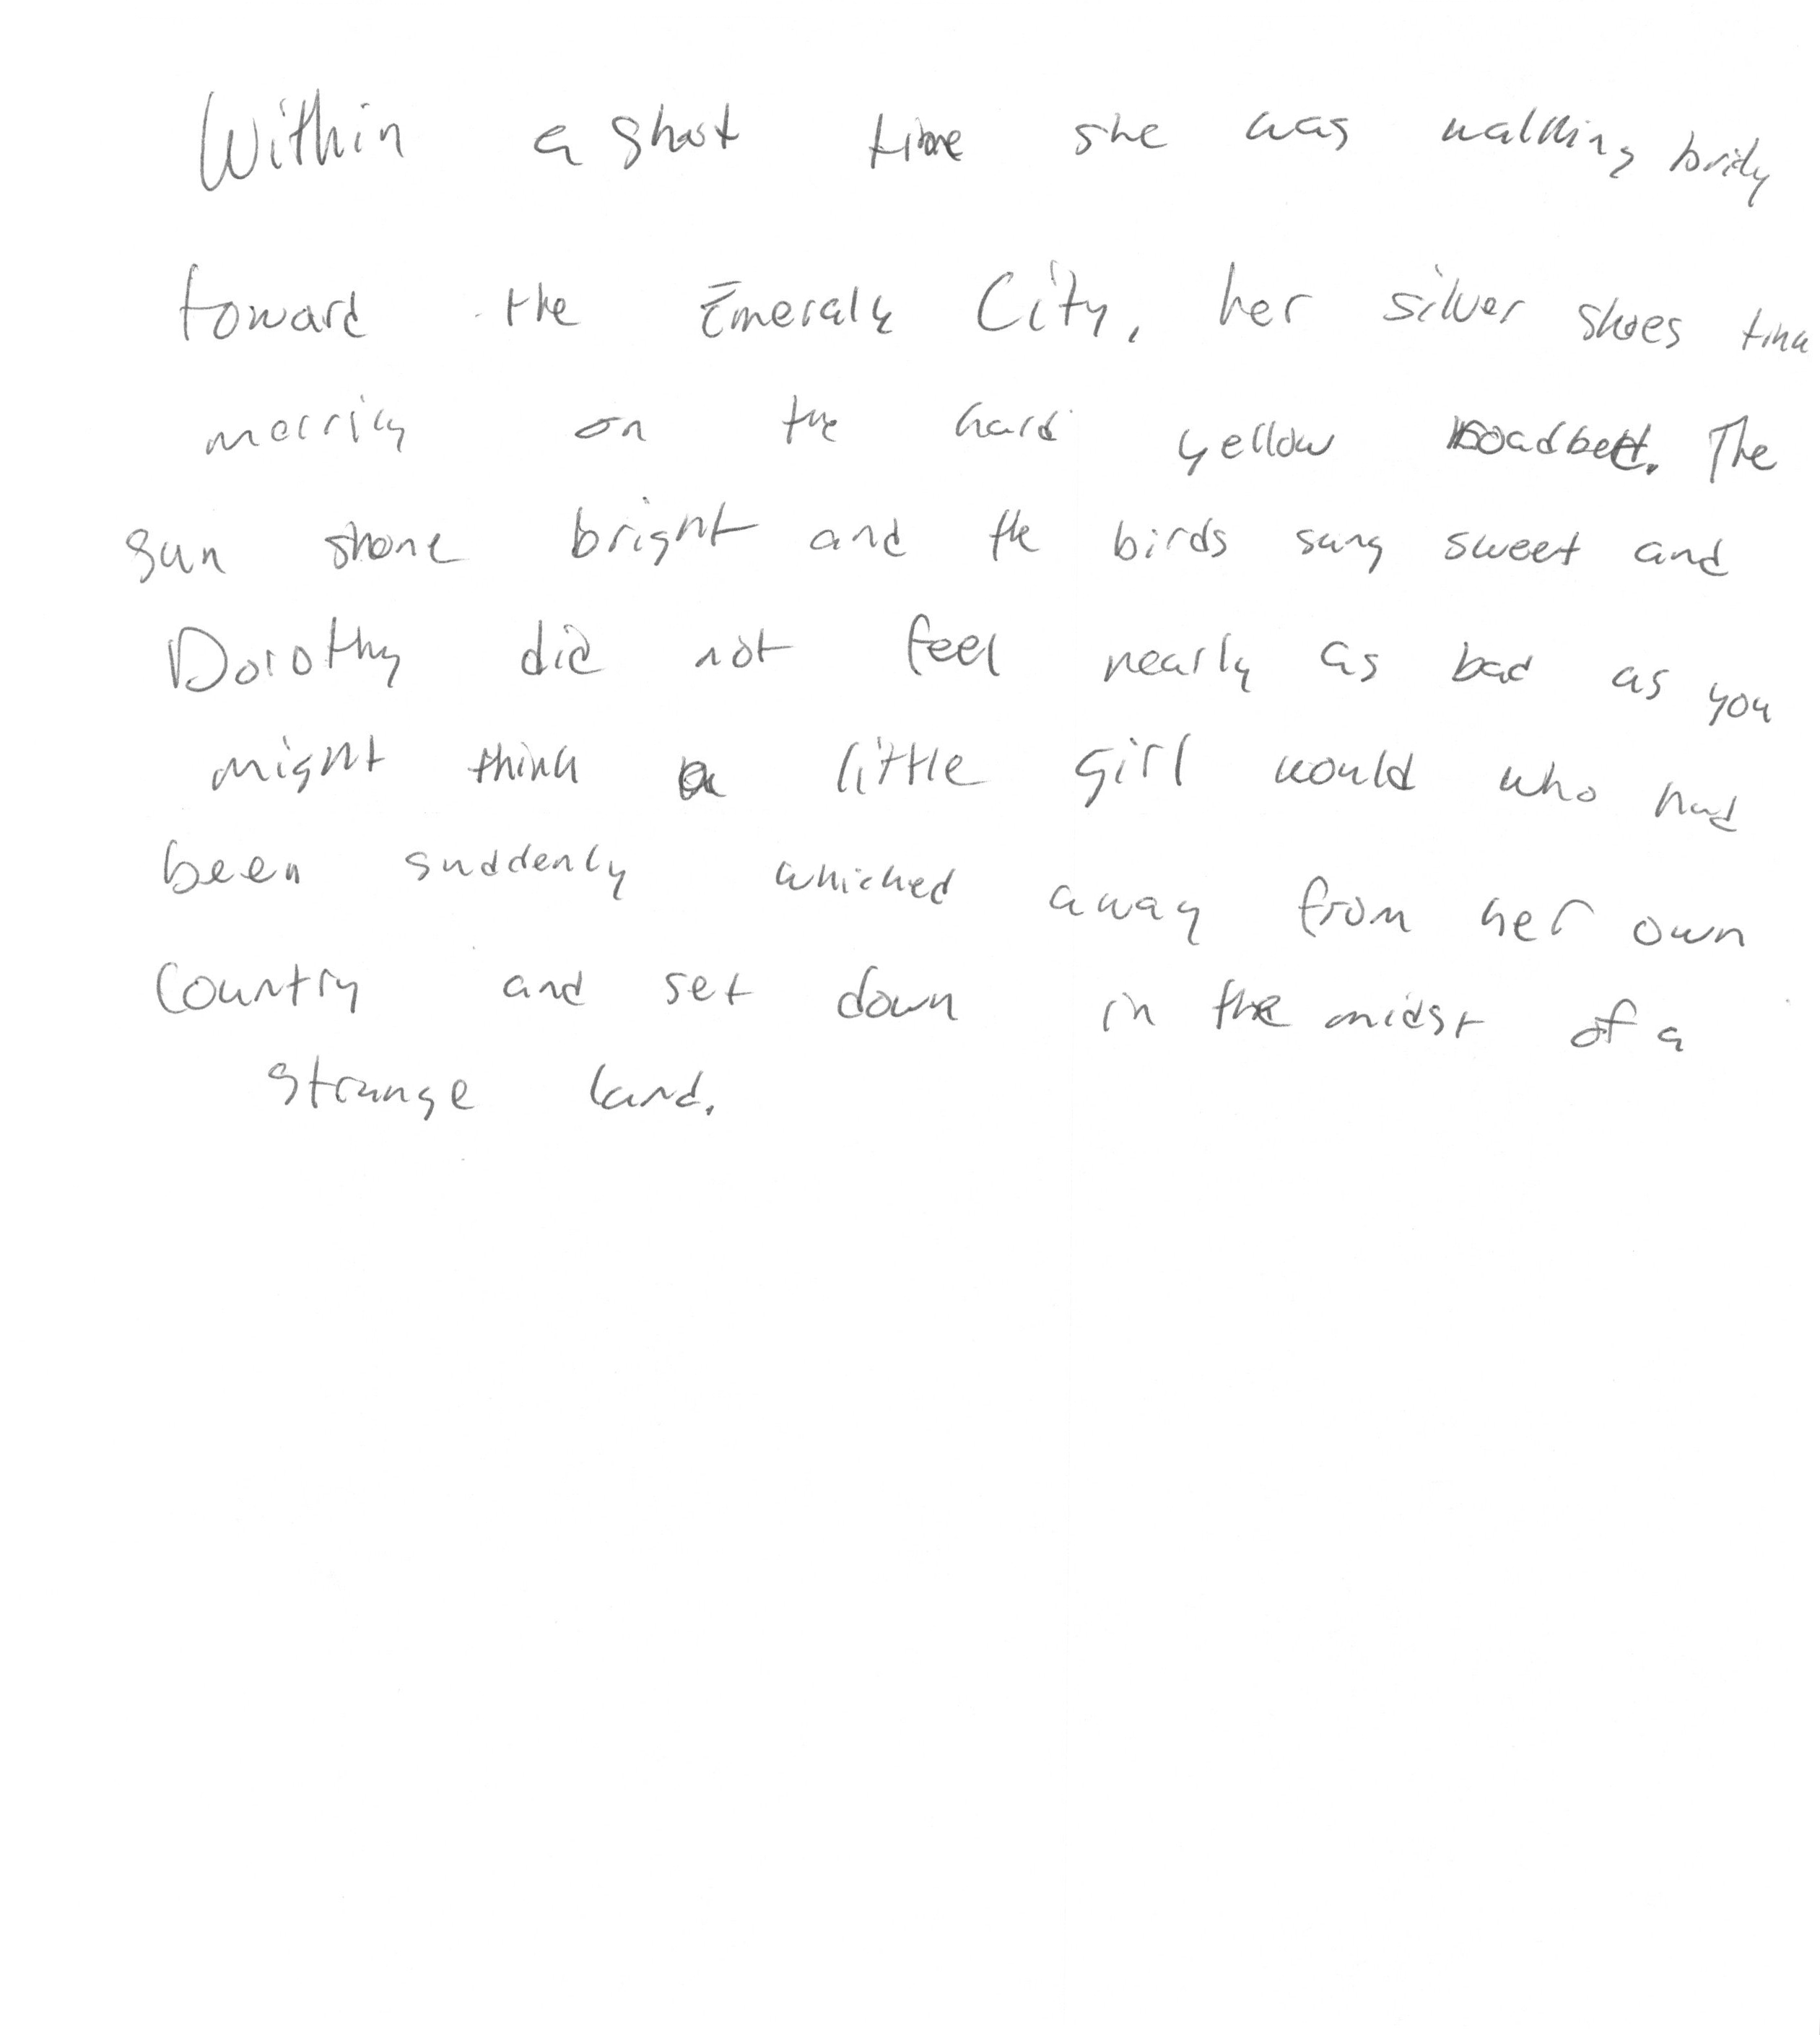 Within a short time she was walking briskly
toward the Emerald City, her silver shoes tink
merrily on the hard yellow roadbed. The
sun shone bright and the birds sung sweet and
Dorothy did not feel nearly as bad as you
might think a little girl would who had
been suddenly whicked away from her own
Country and set down in the midst of a
strange land.